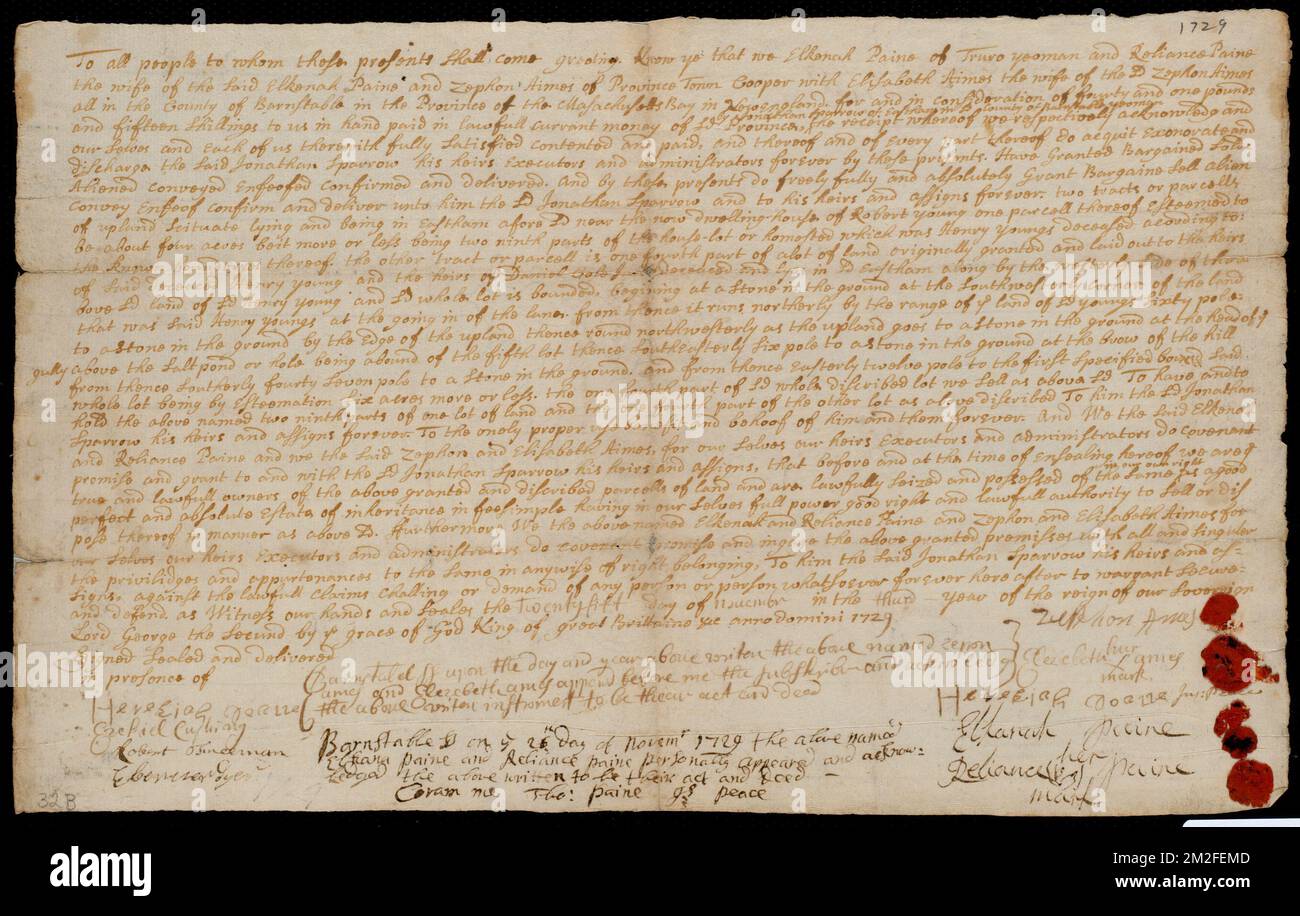 1729
To all people to whom these presents shall come greeting. Know ye that we Elkenah Paine of Truro yeoman and Reliance Paine
the wife of the said Elkenah Paine and Zephon Aimes of Province Town Cooper with Elisabeth Aimes the wife of the sd Zephon Aimes
all in the County of Barnstable in the Province of the Masachysets Bay in Newengland. for and in consideration of fourty and one pounds
Jonathan Sparrow of Eastham in the County of yeoman
and fifteen shillings to us in hand paid in lawfull currant money of sd Province, the receipt whereof we respectively acknowledg and
our selves and each of us therewith fully satisfied contented and paid, and thereof and of every part thereof do acquit Exonorate and
discharge the said Jonathan Sparrow his heirs Executors and administrators forever by these presents. Have granted Bargained sold
Aliened conveyed Enfeofed confirmed and delivered. And by these presents do freely fully and absolutely Grant Bargaine sell alien
convey Enfeof confirm and deliver unto him the sd Jonathan Sparrow and to his heirs and assigns forever. two tracts or parcells
of upland scituate lying and being in Eastham afore sd near the now dwelling-house of Robert young one parcell thereof Esteemed to
be about four acres be it more or less being two ninth parts of the house-lot or homested which was Henry youngs deceased acording to
the known thereof. the other tract or parcell is one fourth part of a lot of land originally granted and laid out to the heirs
of said Henry young and the heirs of Daniel Cole deceased and lys in sd Eastham along by the side of the a
bove sd land of sd Henry young and sd whole lot is bounded, begining at a stone in the ground at the Southwesterly corner of the land
that was said Henry youngs at the going in of the lane. from thence it runs northerly by the range of ye land of sd youngs sixty pole
to a stone in the ground by the Edge of the upland thence round northwesterly as the upland goes to a stone in the ground at the head of ye
gully above the salt pond or hole being a bound of the fifth lot thence Southeasterly six pole to a stone in the ground at the brow of the hill
from thence Southerly fourty seven pole to a stone in the ground. and from thence Easterly twelve pole to the first specified bound said
whole lot being by Esteemation six acres more or less. the one fourth part of sd whole discribed lot we sell as above sd To have and to
hold the above named two ninth parts of one lot of land and the one fourth part of the other lot as above discribed To him the sd Jonathan
Sparrow his heirs and assigns forever. To the onely proper use and behoof of him and them forever. And We the said Elkenah
and Reliance Paine and we the said Zephon and Elisabeth Aimes, for our selves our heirs Executors and administrators do covenant
promise and grant to and with the sd Jonathan Sparrow his heirs and assigns, that before and at the time of Ensealing hereof we are ye
in our own right
true and lawfull owners of the above granted and discribed parcells of land and are lawfully seized and possessed of the same as a good
perfect and absolute Estate of inheritance in fee simple having in our selves full power good right and lawfull authority to sell or dis
pose thereof in manner as above sd. Furthermor We the above named Elkenah and Reliance Paine and Zephon and Elisabeth Aimes for
our selves our heirs Executors and administrators do covenant promise and ingage the above granted premises with all and singular
the privilidges and appurtenances to the same in anywise of right belonging, To him the said Jonathan Sparrow his heirs and as-
signs, against the lawfull claims challing or demand of any person or person whatsoever forever here after to warrant secure
and defend. as Witness our hands and seales the Twenty fift day of November in the third year of the reign of our Soverign
Lord George the Second by ye grace of God King of great Brittaine &c anno domini 1729
Signed sealed and delivered
in presence of
Hezekiah Doane
Ezekiel Cushing
Robert
Ebenezer Dyer
Barnstabel ss upon the day and year above writen the above named Zepon
Eames and Elezebeth eames apeard before me the subskriber and acknowledg
the above writen instroment to be theur act and deed
Hezekiah Doane Jus: Peace
Zephon Ames
Elezebeth hur Eames
mark
Barnstable ss on ye 26th Day of Novemr 1729 the above named
Elkana Paine and Reliance Paine personally appeared and acknow-
ledged the above written to be their act and Deed
Coram me Tho: Paine Js peace
Elkanah Paine
Reliance her Paine
mark
32B
alamy
Image ID: 2M2FEMD
www.alamy.com